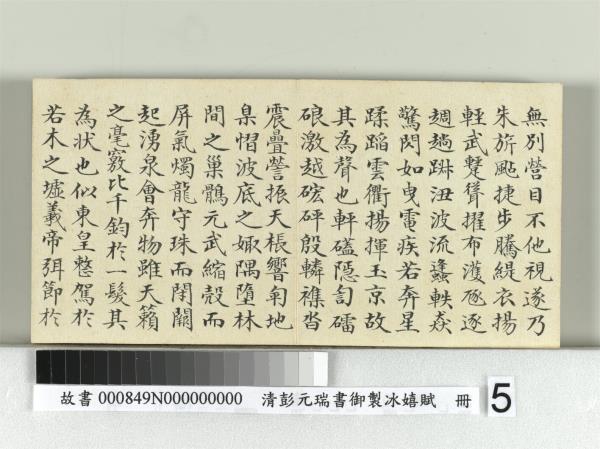 無別營目不他視遂乃
朱旂颭捷步騰緹衣揚
輕武聳擢布濩逐
週趟沑波流蠭軼猋
驚閃如曳電疾若奔星
蹂蹈雲衢揚揮玉京故
其為聲也軯磕隱訇礌
硠激越硡砰殷轔襍沓
震疊謍振天棖響匌地
慴波底之娵隅墮林
間之巢鶻元武縮殼而
屏氣燭龍守珠而閉關
起湧泉會奔物雖天籟
之毫竅比千鈞於一髮其
為狀也似東皇整駕於
若木之墟羲帝弭節於
故書 000849N000000000 清彭元瑞書御製冰嬉賦 冊 5